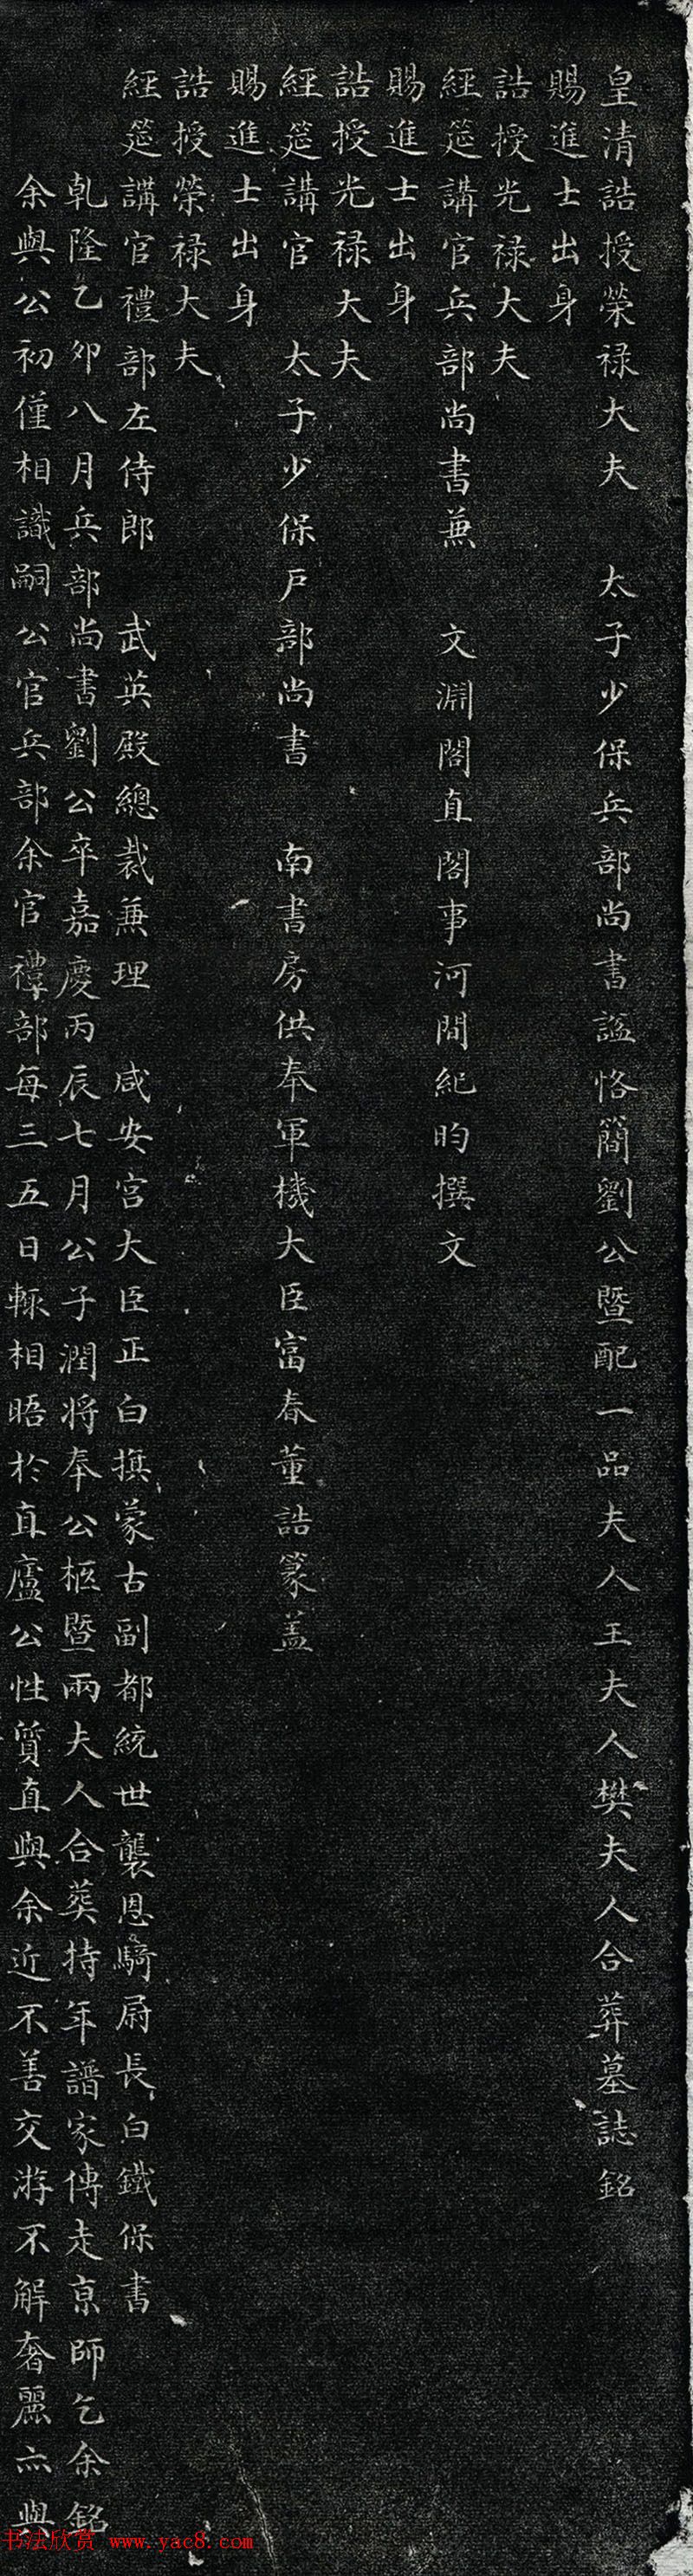 皇清誥授榮祿大夫　太子少保兵部尚書謚恪簡劉公暨配一品夫人王夫人樊夫人合葬墓誌銘
賜進士出身
誥授光祿大夫
經筵講官兵部尚書兼　文淵閣直閣事河間紀昀撰文
賜進士出身
誥授光祿大夫
經筵講官　太子少保戶部尚書　南書房供奉軍機大臣富春董誥篆盖
賜進士出身
誥授榮祿大夫
經筵講官禮部左侍郎　武英殿總裁兼理　咸安宮大臣正白旗蒙古副都統世襲恩騎尉長白鐵保書
乹隆乙卯八月兵部尚書劉公卒嘉慶丙辰七月公子潤將奉公柩暨兩夫人合葬持年譜家傳走京師乞余銘
余與公初僅相識嗣公官兵部余官禮部每三五日輒相晤於直廬公性質直與余近不善交游不解奢麗亦與
书法欣赏 www.yac8.com